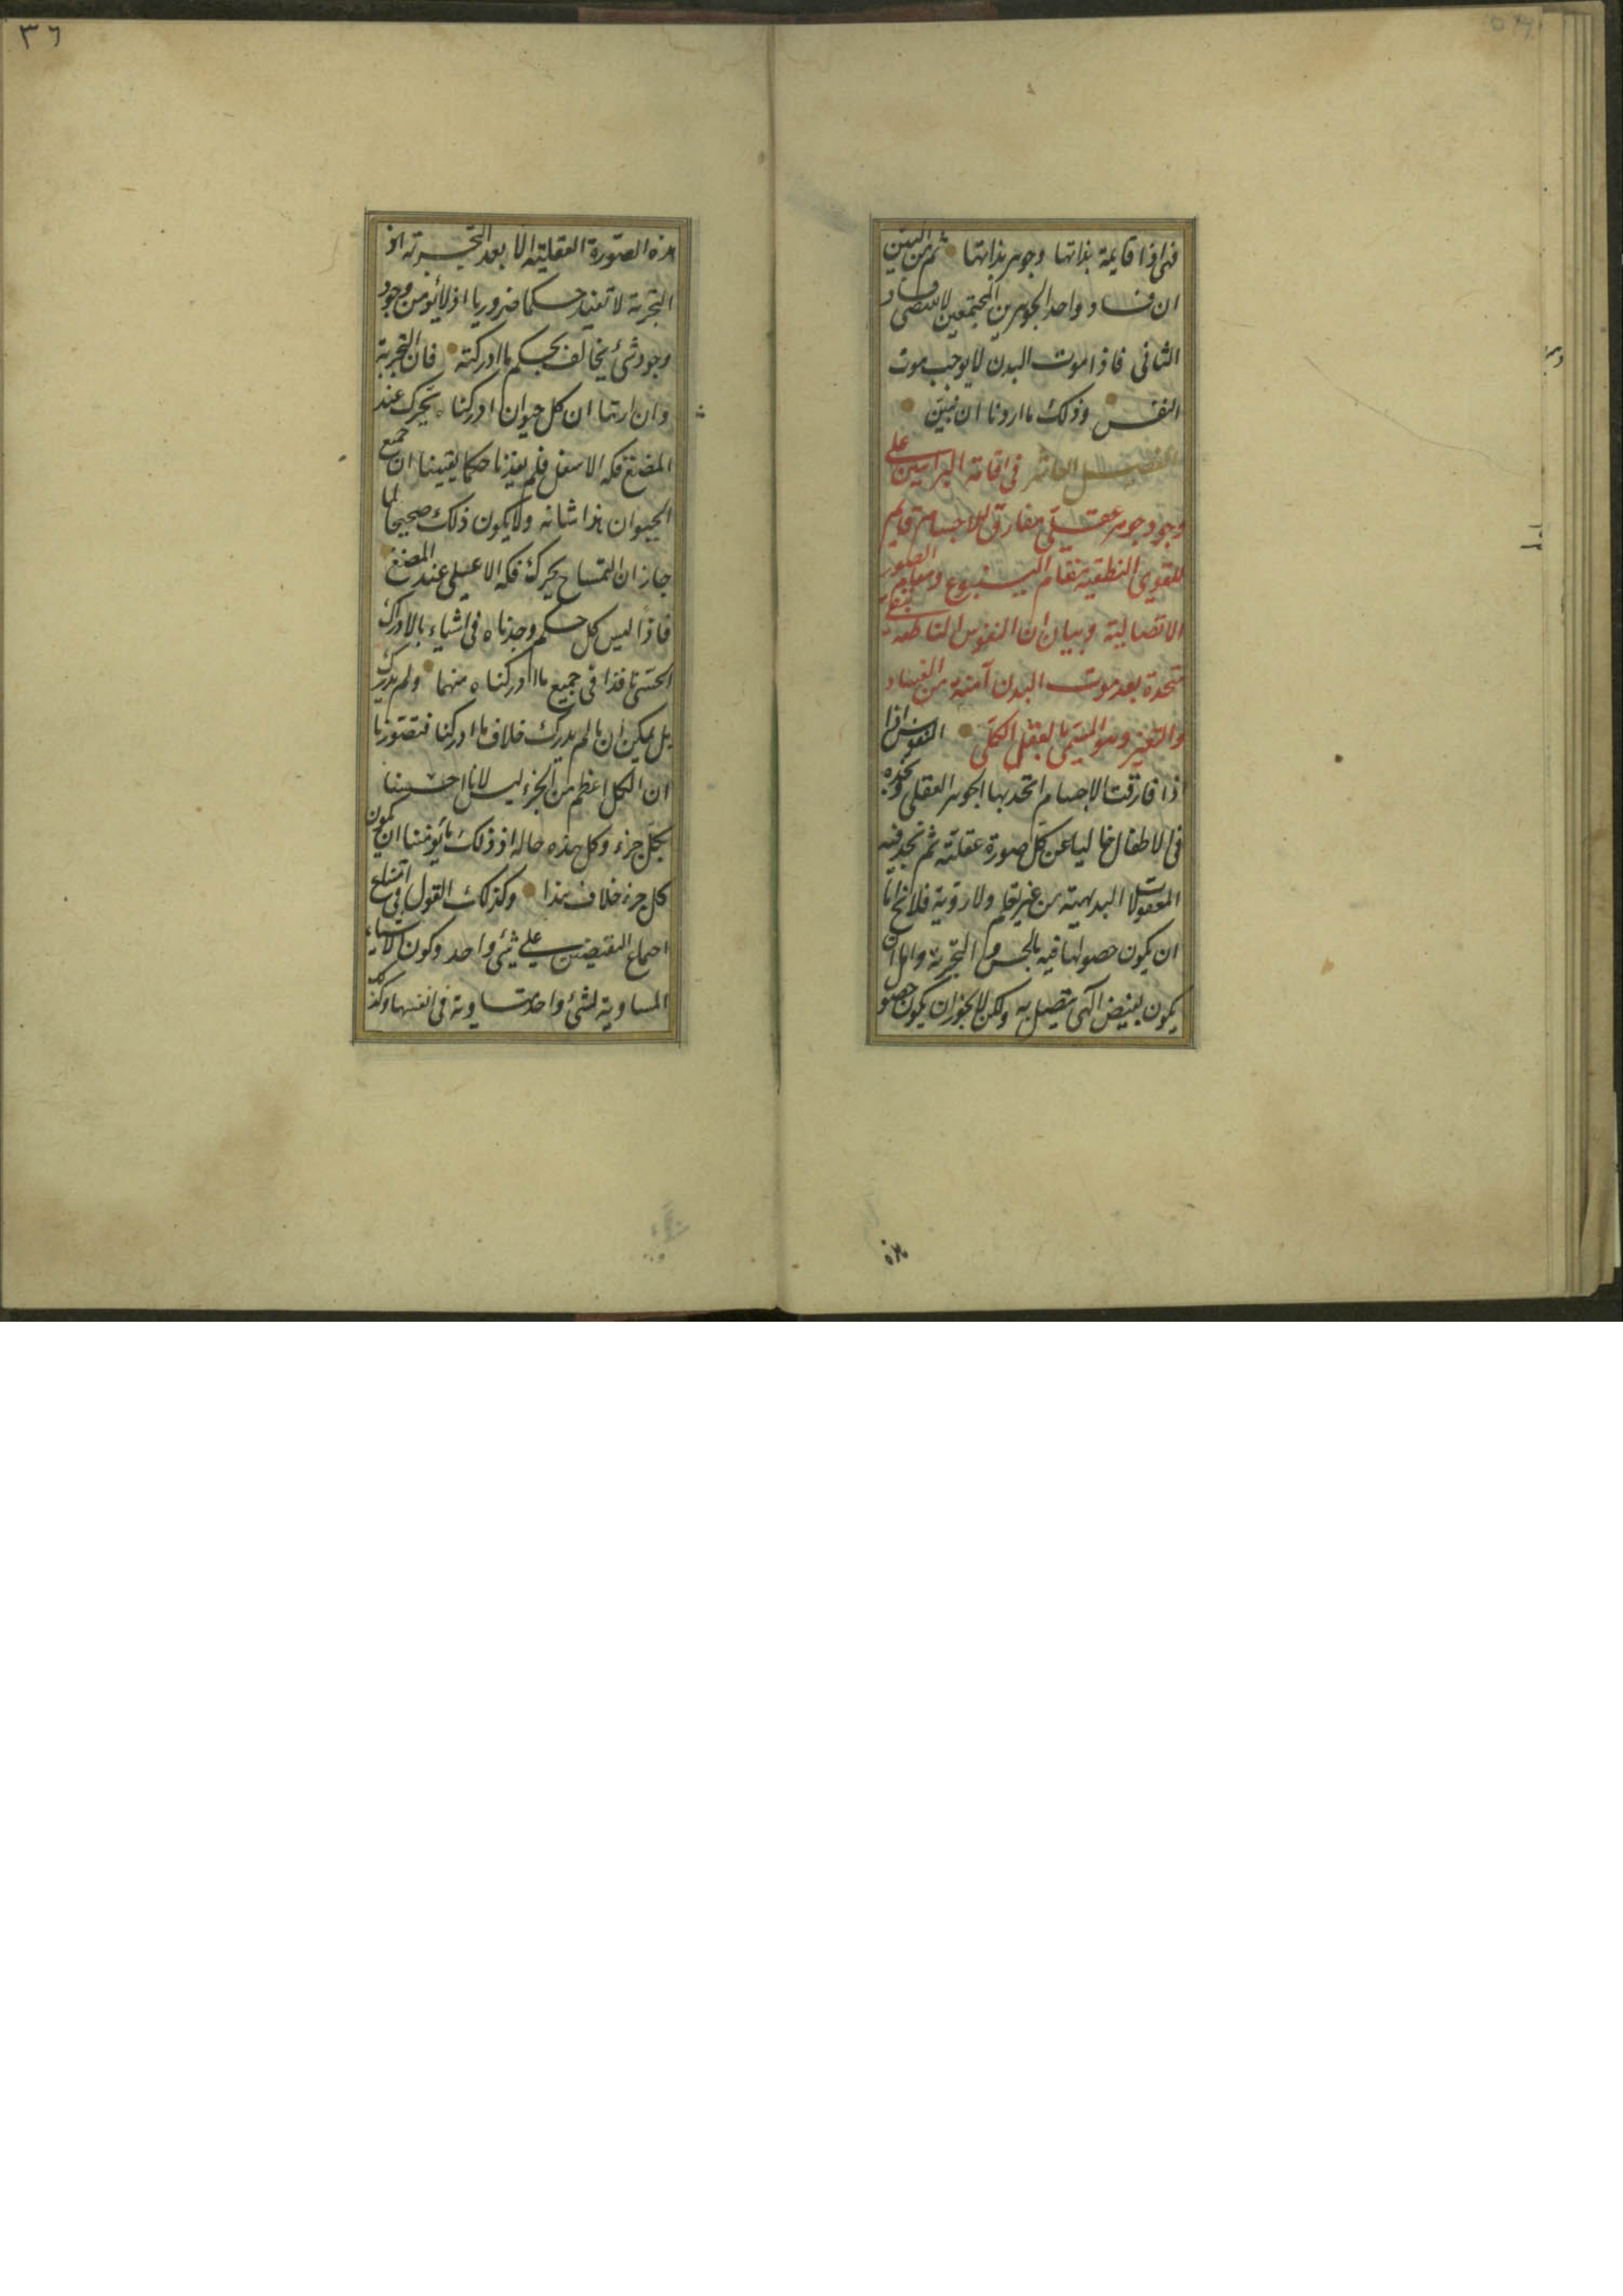 فهي اذا قايمة بذاتها وجوهر بذاتها ثم من البين
ان فساد واحد الجوهرين المجتمعين لا يقتضي فساد
الثاني فاذا موت البدن لا يوجب موت
النفس وذلك ما اردنا ان نبين
الفصل العاشر في اقامة البراهين على
وجود جوهر عقلي مفارق للاجسام قايم
للقوى النطقية مقام الينبوع ومقام الضوء
الاتصالية وبيان ان النفوس الناطقة تبقى
متحدة بعد موت البدن آمنة من الفساد
والتغير وهو المسمى بالعقل الكلي النفوس اذا
ذا فارقت الاجسام اتحد بها الجوهر العقلي ونجده
في الاطفال خاليا عن كل صورة عقلية ثم نجد فيه
المعقولات البديهية من غير تعلم ولا روية فلا يخ اما
ان يكون حصولها فيه بالحس و التجربة واما ان
يكون بفيض الهي يتصل به ولكن لا يجوز ان يكون حصو
هذه
٣٦
هذه الصورة العقلية الا بعد التجربة اذ
التجربة لا تفيد حكما ضروريا اذ لا يؤمن وجود
وجود شئ يخالف بحكم ما ادركته فان التجربة
وان ارتنا ان كل حيوان ادركناه يحرك عند
المضغ فكه الاسفل فلم يفدنا حكما يقينيا ان جميع
الحيوان هذا شانه ولا يكون ذلك صحيحا لما
جاز ان التمساح يحرك فكه الاعلى عند المضغ
فاذًا ليس كل حكم وجدناه في اشياء بالادراك
الحسي نافذا في جميع ما ادركناه منها ولم ندرك
بل يمكن ان ما لم يدرك خلاف ما ادركنا فتصورنا
ان الكل اعظم من الجزء ليس لانا احسسنا
بكل جزء وكل هذه حاله اذ ذلك ما يؤمننا ان يكون
كل جزء خلاف هذا وكذلك القول في امتناع
اجماع النقيضين على شئ واحد وكون الاشياء
المساوية لشئ واحد متساوية في انفسها وكذ